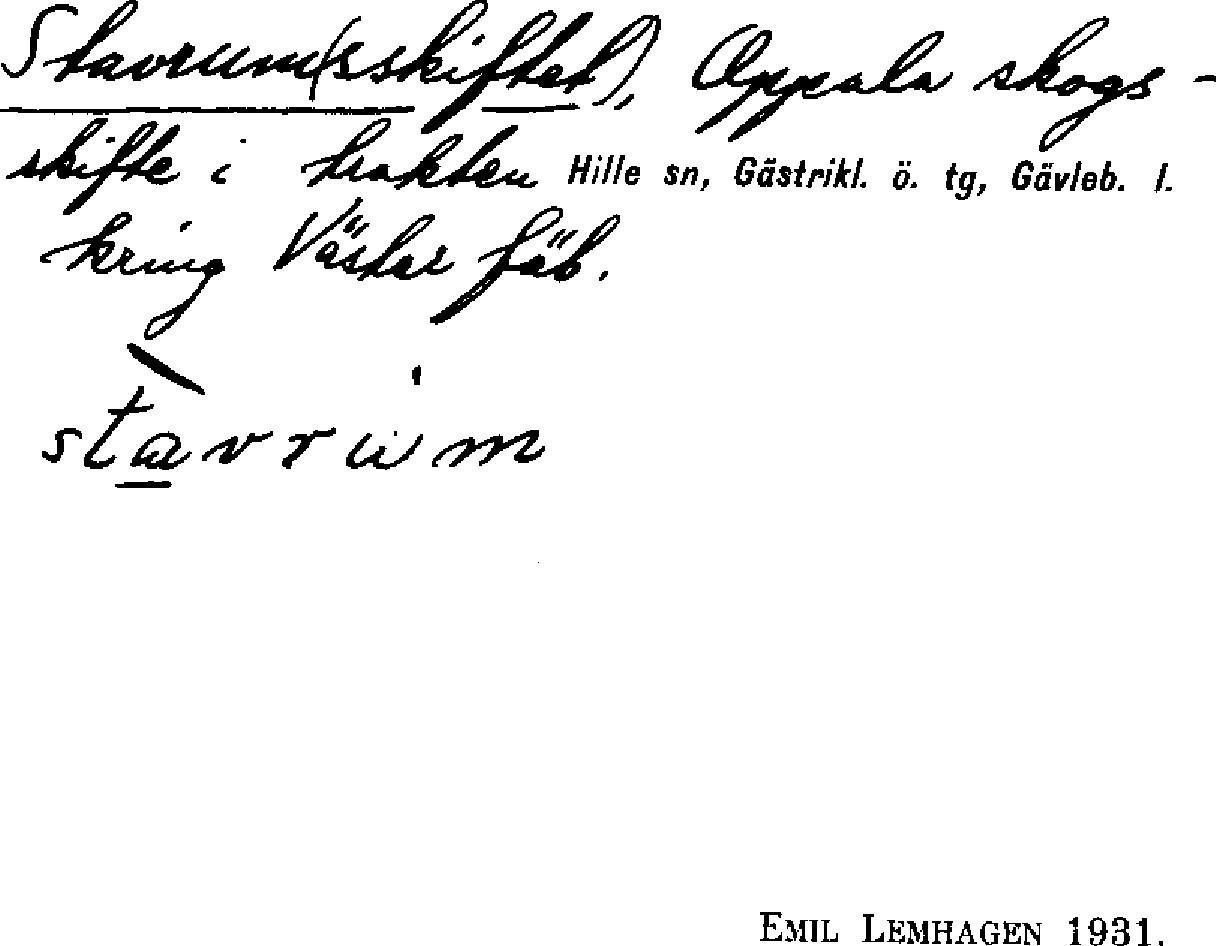 Stavrum(sskiftet), Oppala skogs-
skifte i trakten Hille sn, Gästrikl. ö. tg, Gävleb. l.
kring Västar fäb.
stàvrum
EMIL LEMHAGEN 1931.